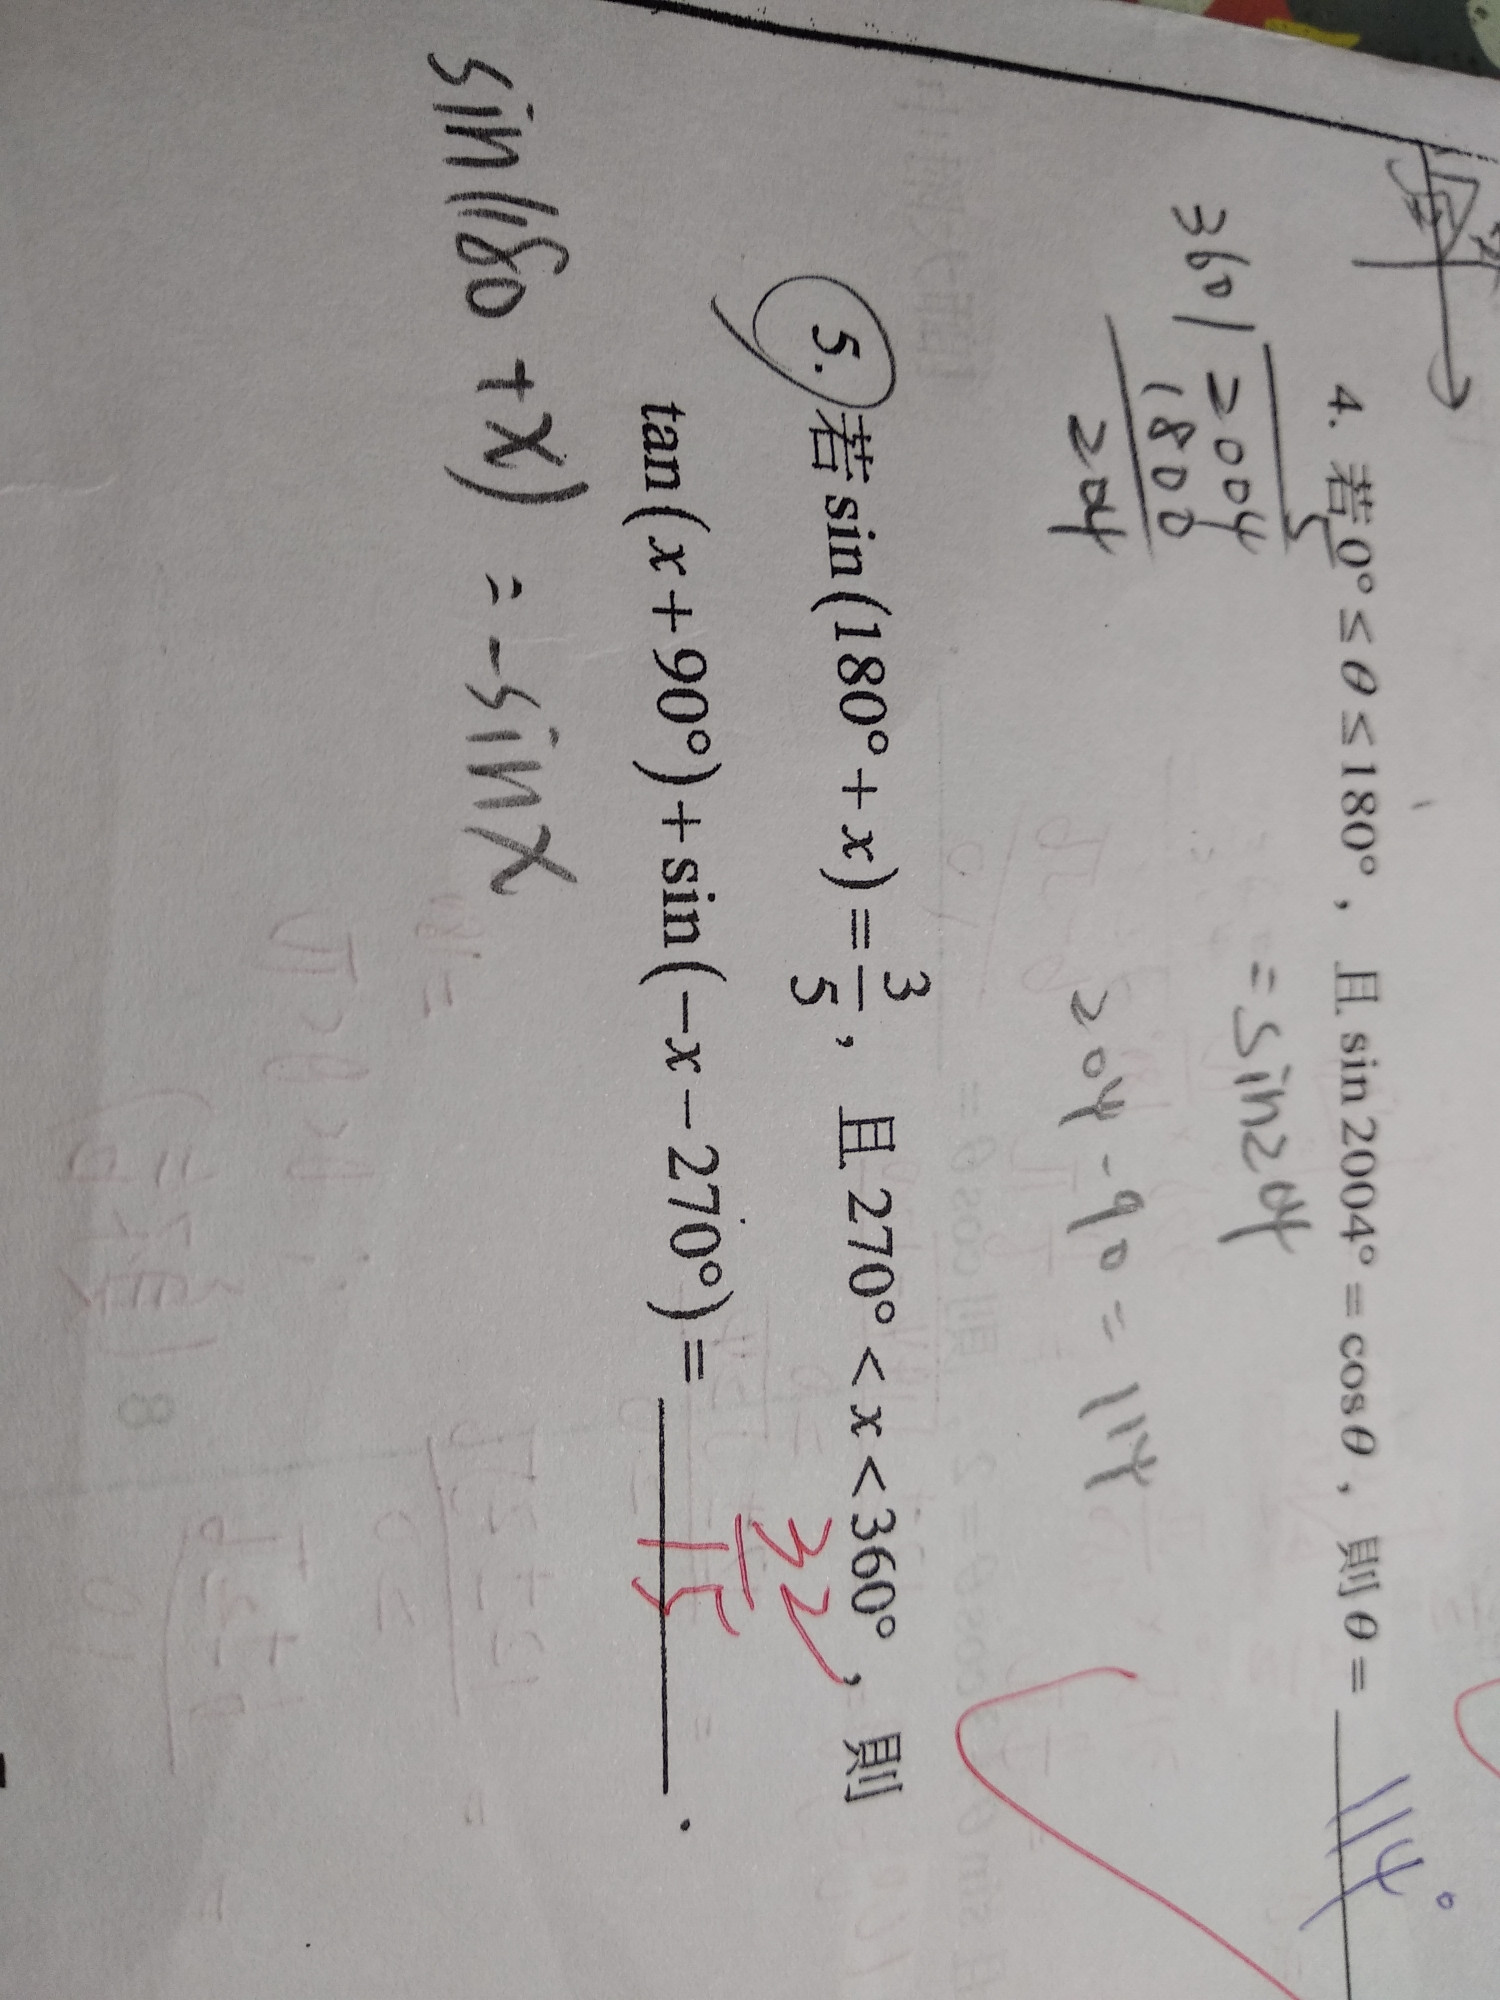 4. 若 0° ≤ θ ≤ 180°，且 sin 2004° = cos θ，則 θ = 114°
= sin204
5
360 2004
1800
204
204 - 90 = 114
5. 若 sin(180° + x) = 3/5，且 270° < x < 360°，則
tan(x + 90°) + sin(−x − 270°) = 32/15 .
sin(180 + x) = -sinx